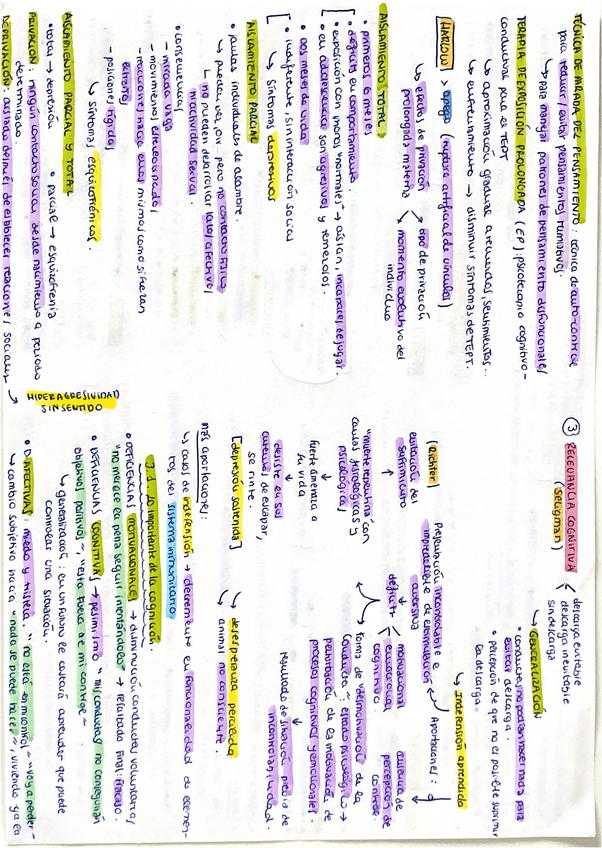 TÉCNICA DE PARADA DEL PENSAMIENTO: técnica de auto-control
para reducir/evitar pensamientos rumiativos.
↳ para manejar patrones de pensamiento disfuncionales
TERAPIA DE EXPOSICIÓN PROLONGADA (EP): psicoterapia cognitivo-
conductual para el TEPT
↳ aproximación gradual a recuerdos, sentimientos...
↳ enfrentamiento → disminuir síntomas de TEPT.
HARLOW → apego (ruptura artificial de vínculos)
↳ efectos de privación
prolongada materna
tipo de privación
momento evolutivo del
individuo
AISLAMIENTO TOTAL
• primeros 6 meses
• déficits en comportamiento
• exposición con monos "normales" → aíslan, incapaces de jugar.
• en adolescencia son agresivos y temerosos.
• dos meses de vida
• indiferente, sin interacción social
↳ síntomas depresivos
AISLAMIENTO PARCIAL
• jaulas individuales de alambre.
↳ pueden ver, oír pero no contacto físico
↳ no pueden desarrollar lazos afectivos
• consecuencias
inactividad social.
- mirada vaga
- movimientos estereotipados
- reacciones hacia ellos mismos como si fueran
extraños
- posiciones rígidas
↳ síntomas esquizofrénicos.
AISLAMIENTO PARCIAL Y TOTAL
• total → depresión • parcial → esquizofrenia
PRIVACIÓN: ningún contacto social desde nacimiento a periodo
determinado.
DEPRIVACIÓN: aislado después de establecer relaciones sociales
↳ HIPERAGRESIVIDAD
SIN SENTIDO
③ RELEVANCIA COGNITIVA
(Seligman)
descarga evitable
descarga inevitable
sin descarga
↳ GENERALIZACIÓN
• conductas no podían hacer nada para
evitar descarga.
• percepción de que no es posible suprimir
la descarga.
↳ Indefensión aprendida
Aportaciones:
ausencia de
percepción de
control.
Preparación incontrolable e
impredecible de estimulación
aversiva
déficits
motivacional
emocional
cognitivo.
↳ forma de desmotivación de la
conducta → estado psicológico →
perturbación de la motivación de
procesos cognitivos y emocionales.
Resultados de situación previa de
incontrolabilidad.
(Richter)
evitación del
sufrimiento
"muerte repentina" con
causas fisiológicas y
psicológicas
fuerte amenaza a
su vida
desiste en sus
carreras de escapar,
se rinde.
[depresión sostenida]
↳ desesperanza percibida
↳ animal no consciente.
más aportaciones:
↳ casos de indefensión → decremento en funcionalidad de elemen-
tos del sistema inmunitario
3.1 Lo importante de la cognición.
• DEFICIENCIAS MOTIVACIONALES → disminución conductas voluntarias
"no merece la pena seguir intentándolo" → resultado final: fracaso.
• DEFICIENCIAS COGNITIVAS → pesimismo "mis conductas no conseguirán
objetivos positivos", "está fuera de mi control"
↳ generalización: en un futuro le costará aprender que puede
controlar una situación.
• D. AFECTIVAS: miedo y tristeza. "no está en mi control" "voy a perder"
↳ cambio subjetivo hacia "nada se puede hacer", viviendo ya en